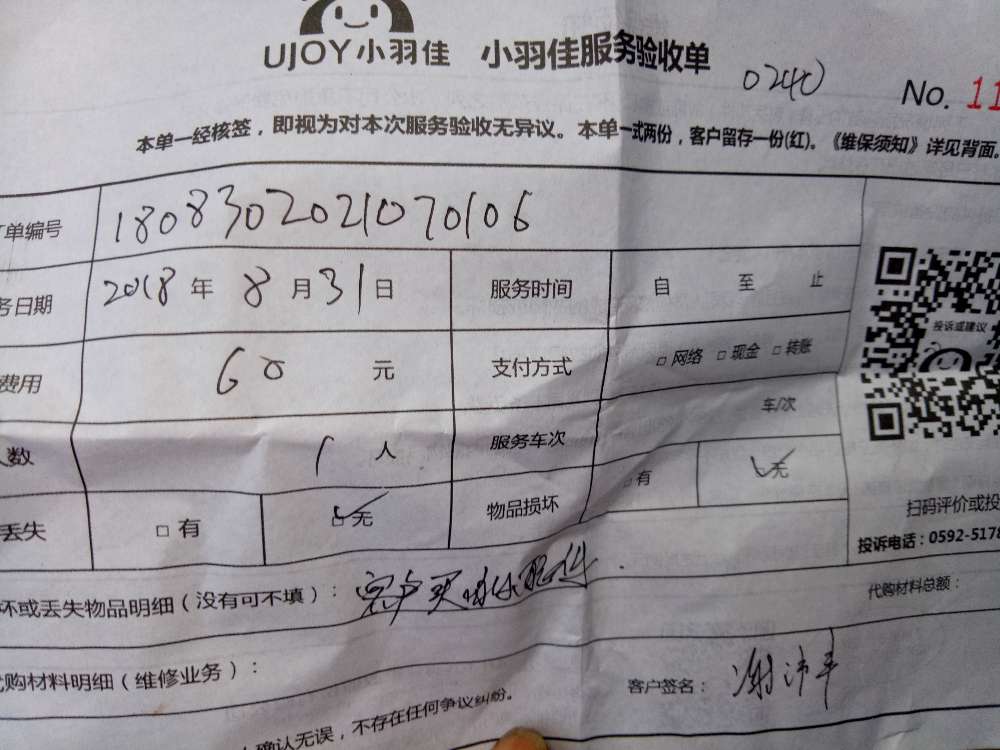 UJOY小羽佳 小羽佳服务验收单
0240 No. 11
本单一经核签，即视为对本次服务验收无异议。本单一式两份，客户留存一份(红)。《维保须知》详见背面。
单编号 1808302021070106
务日期 2018 年 8 月 31 日 服务时间 自 至 止
费用 60 元 支付方式 □ 网络 □ 现金 □ 转账
投诉或建议
人数 1 人 服务车次 车/次
丢失 □ 有 □ 无 物品损坏 □ 有 无
扫码评价或投
投诉电话：0592-5178
坏或丢失物品明细（没有可不填）： 客户买 配件
代购材料总额：
代购材料明细（维修业务）：
客户签名： 谢沛平
确认无误，不存在任何争议纠纷。